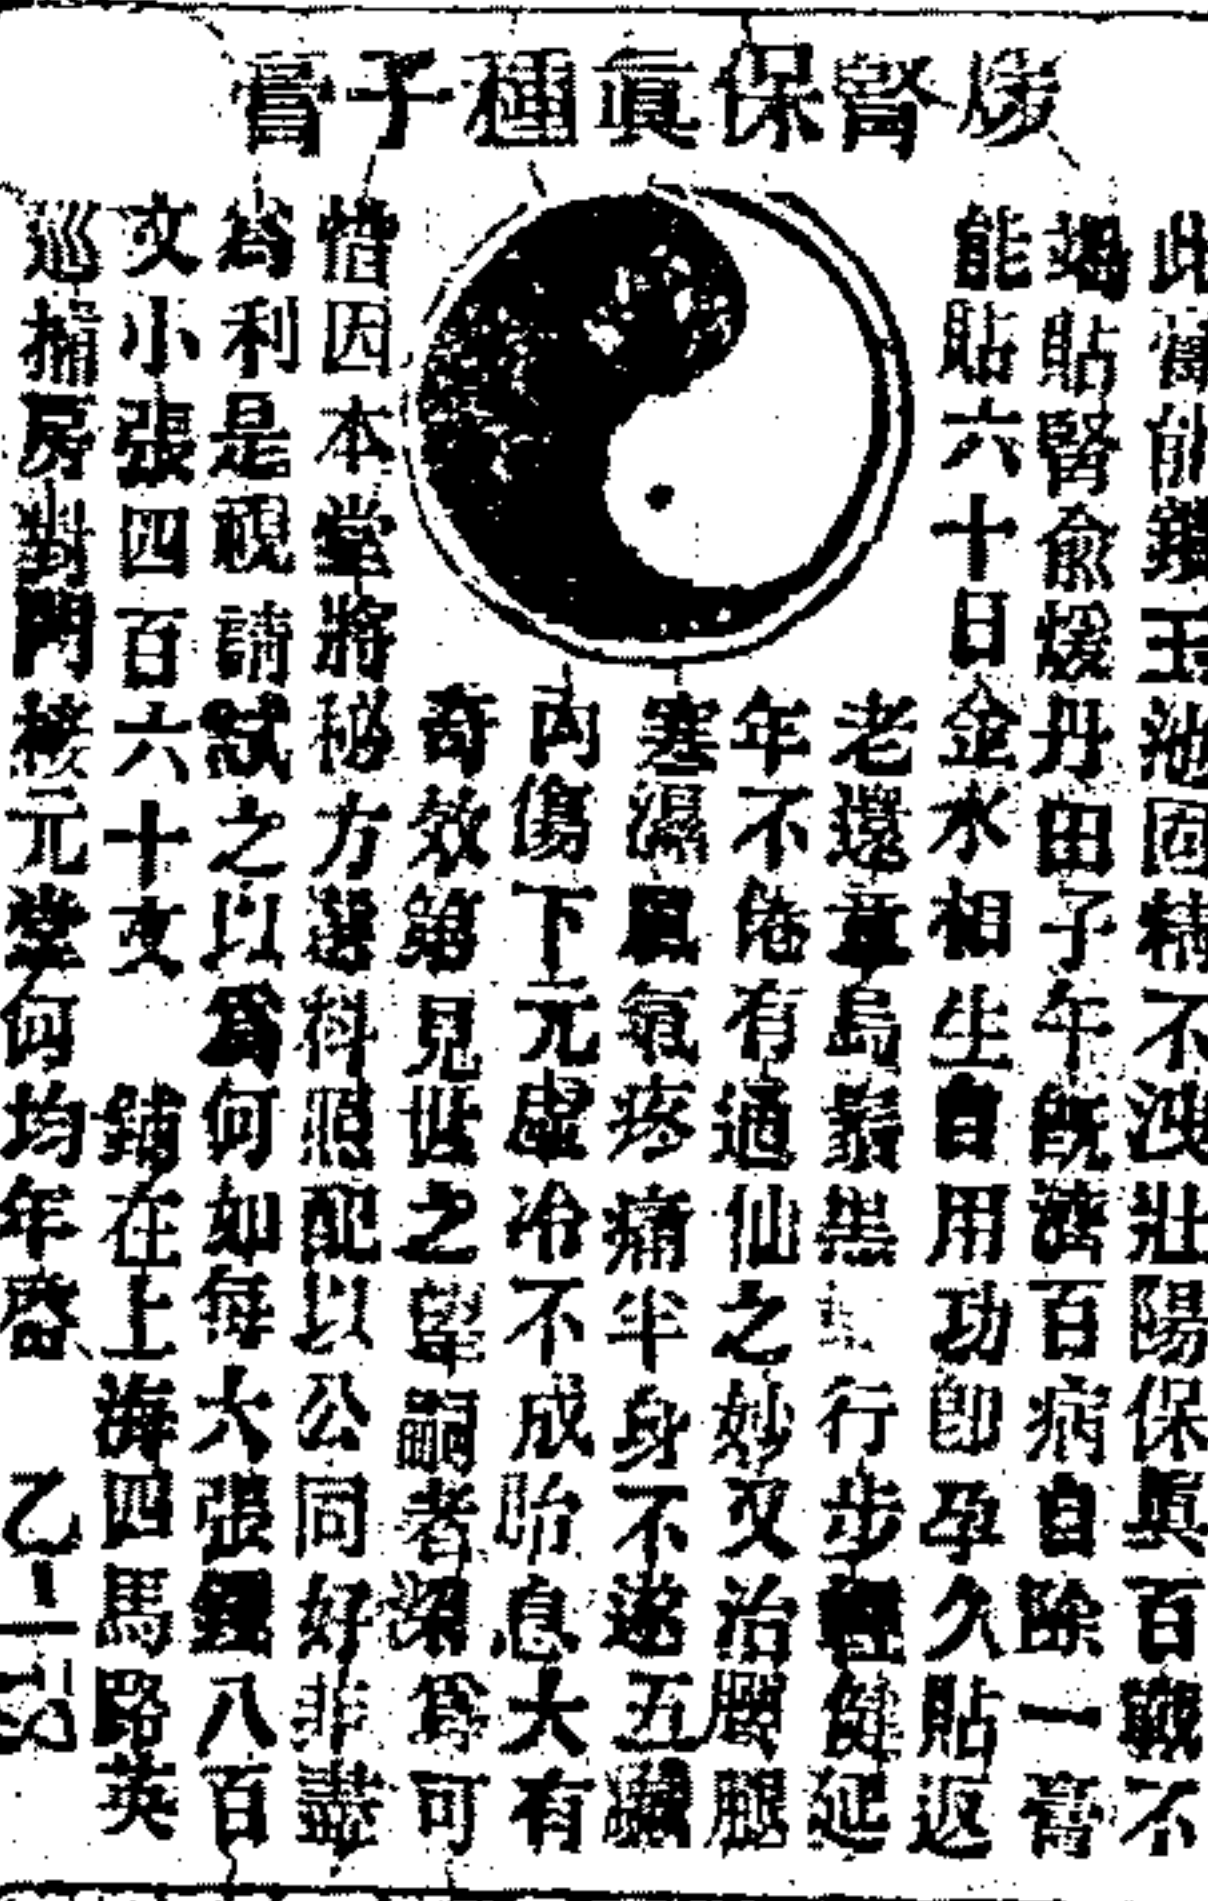 煖腎保眞種子膏
此膏能鎖玉池固精不洩壯陽保眞百戰不
竭貼腎俞煖丹田子午旣濟百病自除一膏
能貼六十日金水相生自用功卽孕久貼返
老還童烏鬚黑行步輕健延
年不倦有通仙之妙又治腰腿
寒濕氣疼痛半身不遂五
內傷下元虛冷不成胎息大有
奇效第見世之望嗣者深爲可
惜因本堂將秘方選料照配以公同好非盡
爲利是視請試之以爲何如每大張錢八百
文小張四百六十文 鋪在上海四馬路英
巡捕房對門核元堂何均年啓 乙二